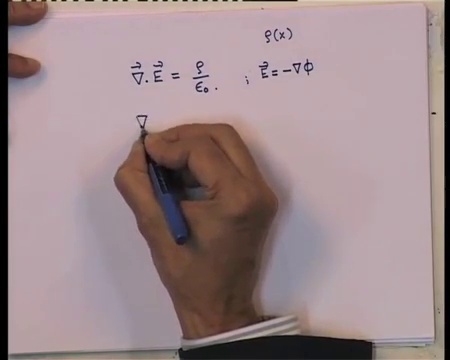 ρ(x)
∇⃗.E⃗ = ρ/ε₀. ; E⃗ = -∇φ
∇